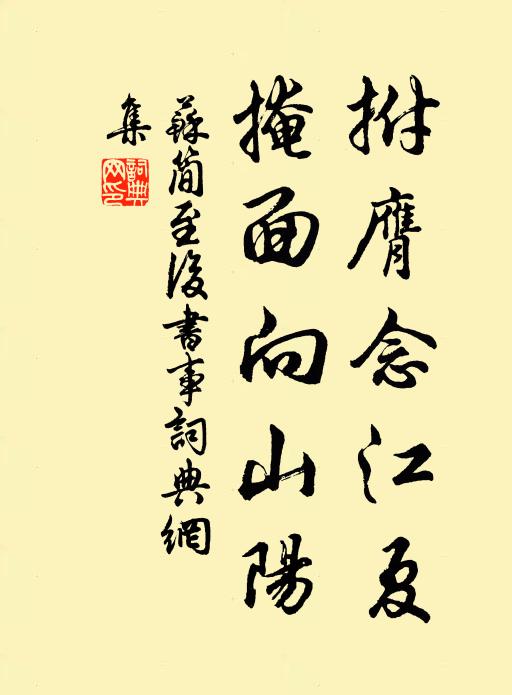 拊膺念江夏
掩面向山陽
蘇簡至後書事詞典網
集
詞典網印